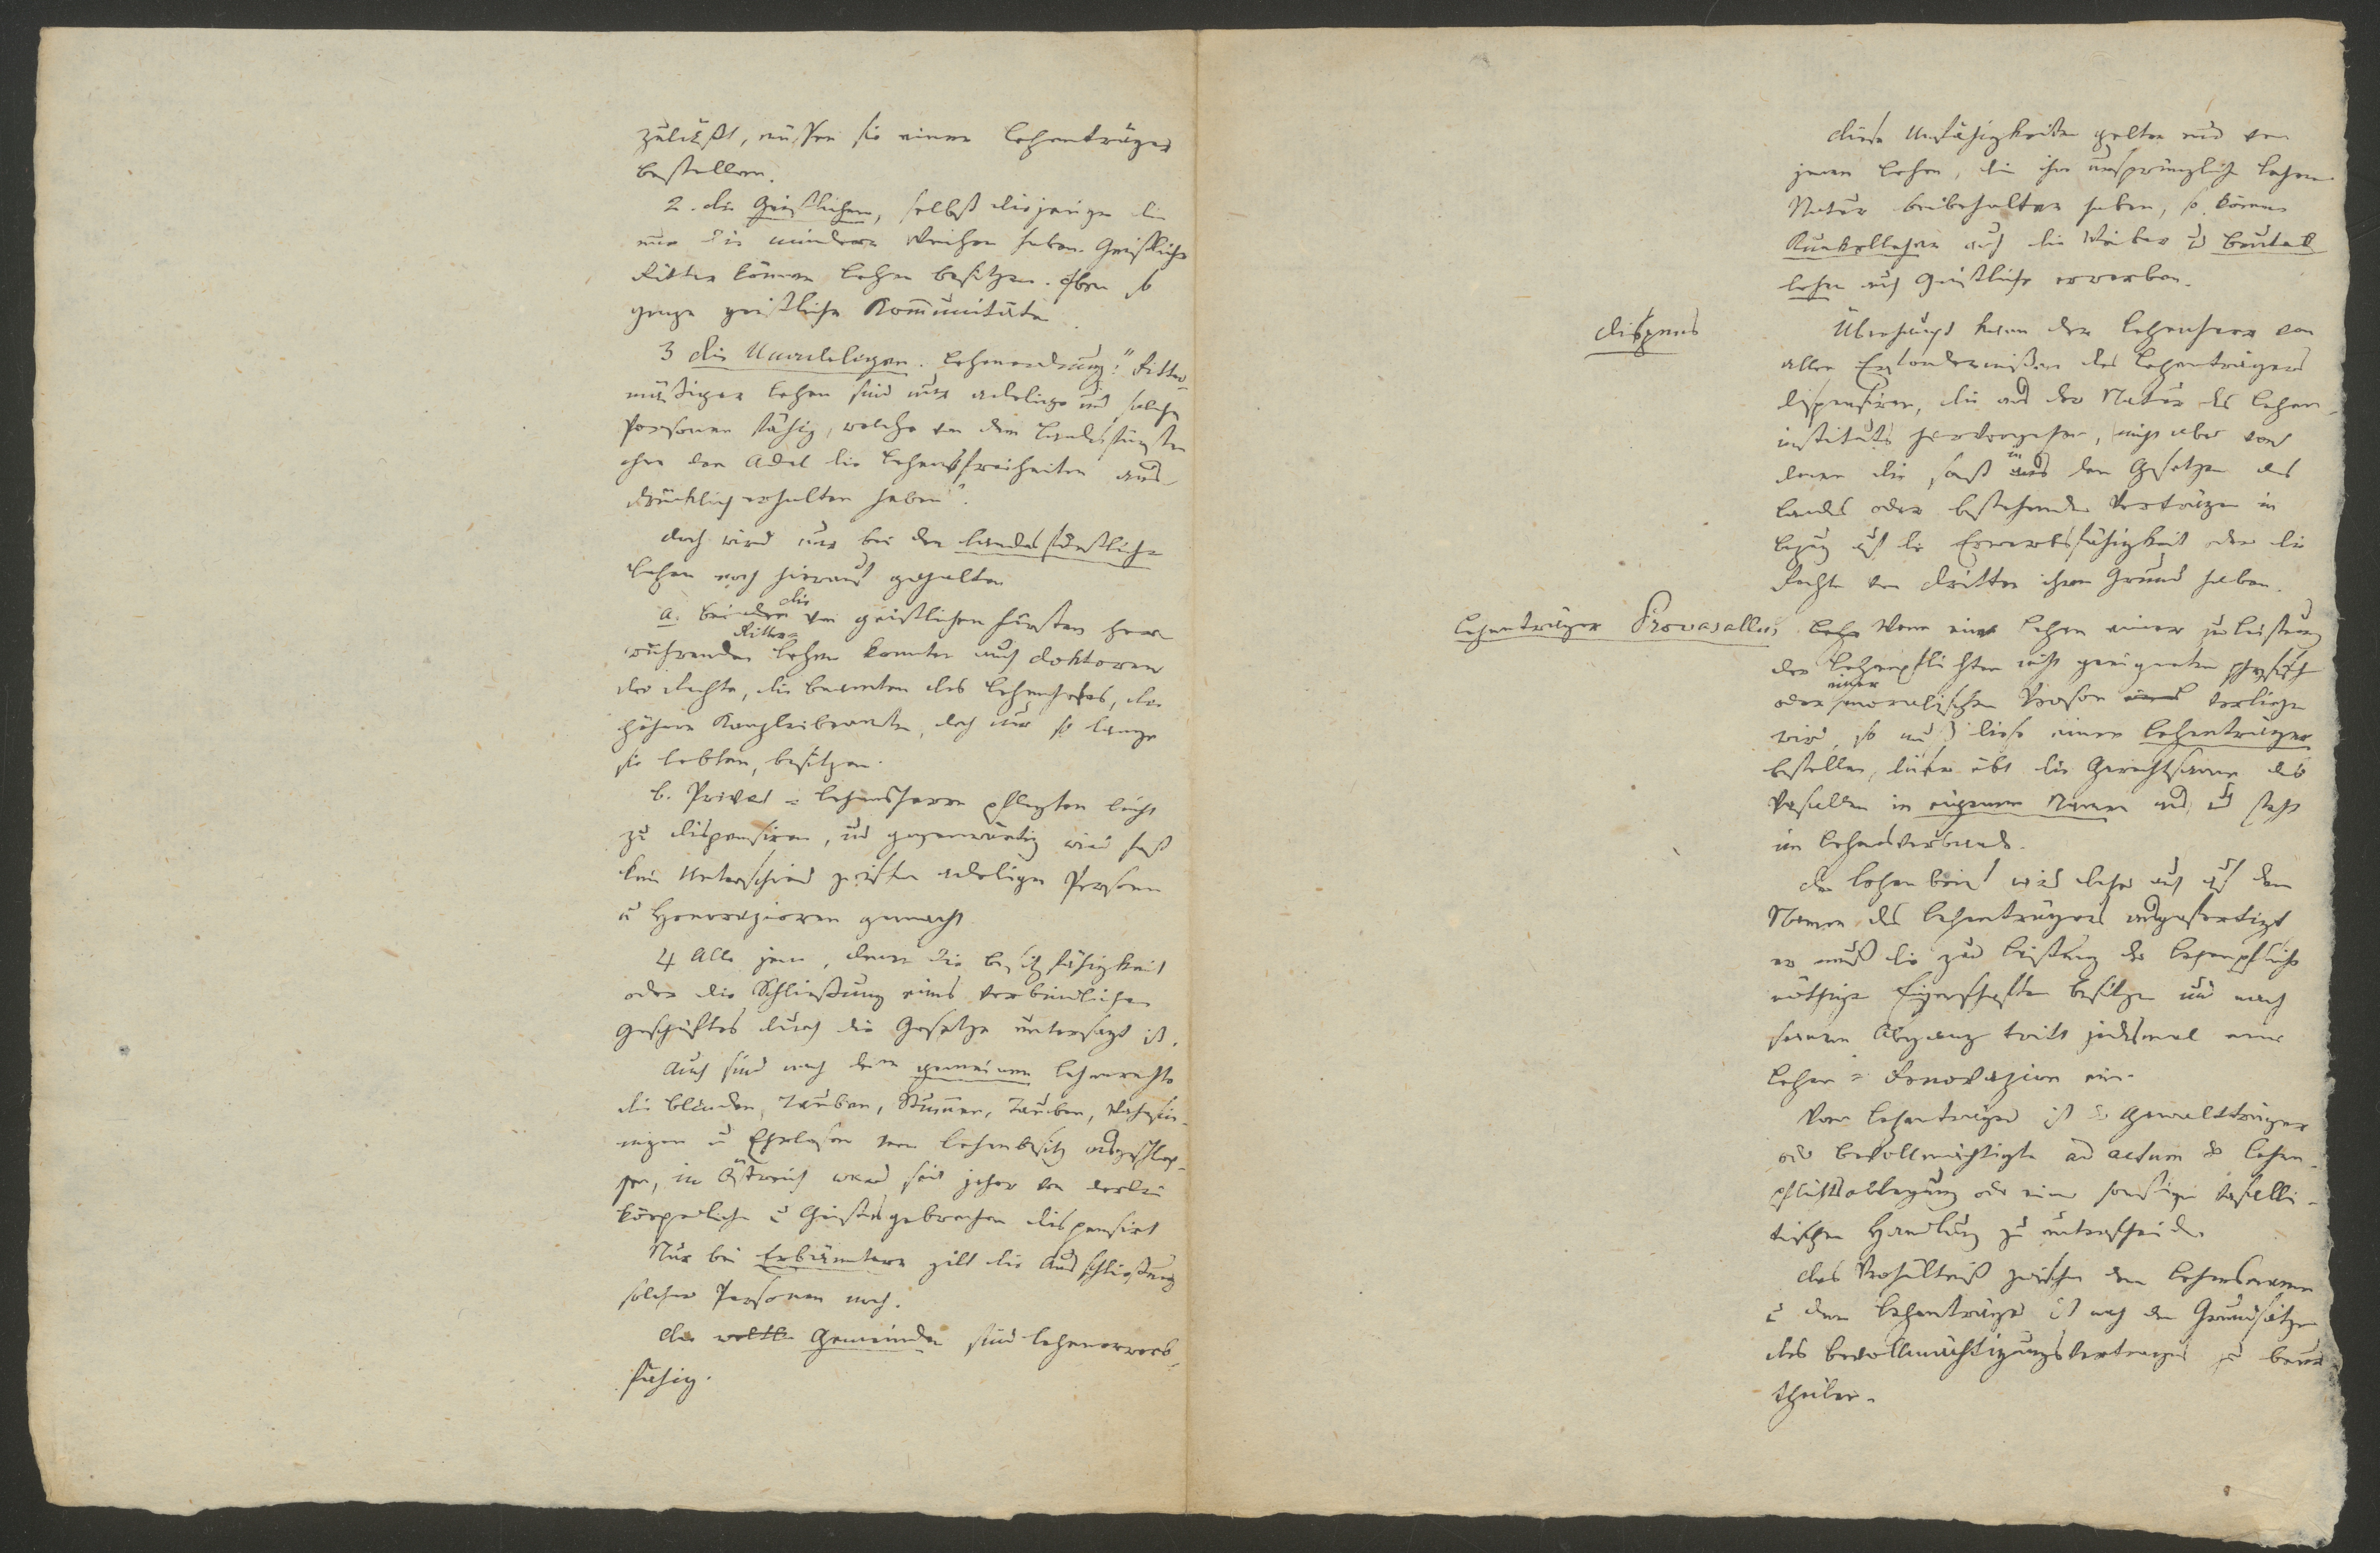 zuläßt, müssen sie einen Lehenträger
bestellen.
2. die Geistlichen, selbst diejenigen die
nur die mindern Weihen haben. Geistliche
Ritter können Lehen besitzen. Eben so
ganze geistliche Kom̄unitäten
3 die Unadeligen. Lehenordnung: "Ritter-
mäßiger Lehen sind nur adelige und solche
Personen fähig, welche von dem Landesfürsten
ohne den Adel die Lehensfreiheiten aus-
drücklich erhalten haben".
doch wird nur bei den landesfürstlichen
Lehen noch hierauf gehalten
a. bei den die von geistlichen Fürsten her-
rührenden Ritter= Lehen konnten auch Doktoren
der Rechte, die Beamten des Lehenhofes, die
höhern Kanzleibeamten, doch nur so lange
sie lebten, besitzen.
b. Privat = Lehensherrn pflegten leicht
zu dispensiren, und gegenwärtig wird fast
kein Unterschied zwischen adeligen Personen
u Honorazioren gemacht
4 Alle jene, denen die Besitzfähigkeit
oder die Schließung eines verbindlichen
Geschäftes durch die Gesetze untersagt ist.
Auch sind nach dem gemeinen Lehenrechte
die Blinden, Tauben, Stum̄en, Tauben, Wahnsin-
nigen u Ehrlosen vom Lehenbesitz ausgeschlos-
sen, in Östreich ward seit jeher von derlei
körperlichen u Geistesgebrechen dispensirt
Nur bei Erbämtern gilt die Ausschließung
solcher Personen noch.
die weltli Gemeinden sind lehenerwerb-
fähig.
diese Unfähigkeiten gelten nur von
jenen Lehen, die ihre ursprüngliche Lehen-
Natur beibehalten haben, so können
Kunkellehen auch die Weiber u Beutel
lehen auch Geistliche erwerben.
Dispens
Überhaupt kann der Lehenherr von
allen Erfordernißen des Lehenträgers
dispensiren, die aus der Natur des Lehen-
instituts hervorgehen, nicht aber von
denen die sonst aus in den Gesetzen des
Landes oder bestehenden Verträgen in
Bezug auf die Erwerbsfähigkeit oder die
Rechte von Dritten ihren Grund haben.
Lehenträger Provasallus
Lehe Wenn ein Lehen einer zur Leistung
der Lehenpflichten nicht geeigneten physisch
oder einer moralischen Person verliehen
wird, so muß diese einen Lehenträger
bestellen, dieser übt die Gerechtsame des
Vasallen in eigenem Namen aus u steht
im Lehensverbande.
der Lehenbrief wird daher auch auf den
Namen des Lehenträgers ausgefertigt
er muß die zur Leistung der Lehenpflicht
nöthigen Eigenschaften besitzen und nach
seinem Abgang tritt jedesmal eine
Lehen = Renovazion ein.
Vom Lehenträger ist der Gewaltträger
od Bevollmächtigte ad actum der Lehen-
pflichtsablegung oder einer sonstigen vasalli-
tischen Handlung zu unterscheiden
das Verhältniß zwischen dem Lehensmanne
u dem Lehenträger ist nach den Grundsätzen
des Bevollmächtigungsvertrages zu beur
theilen.